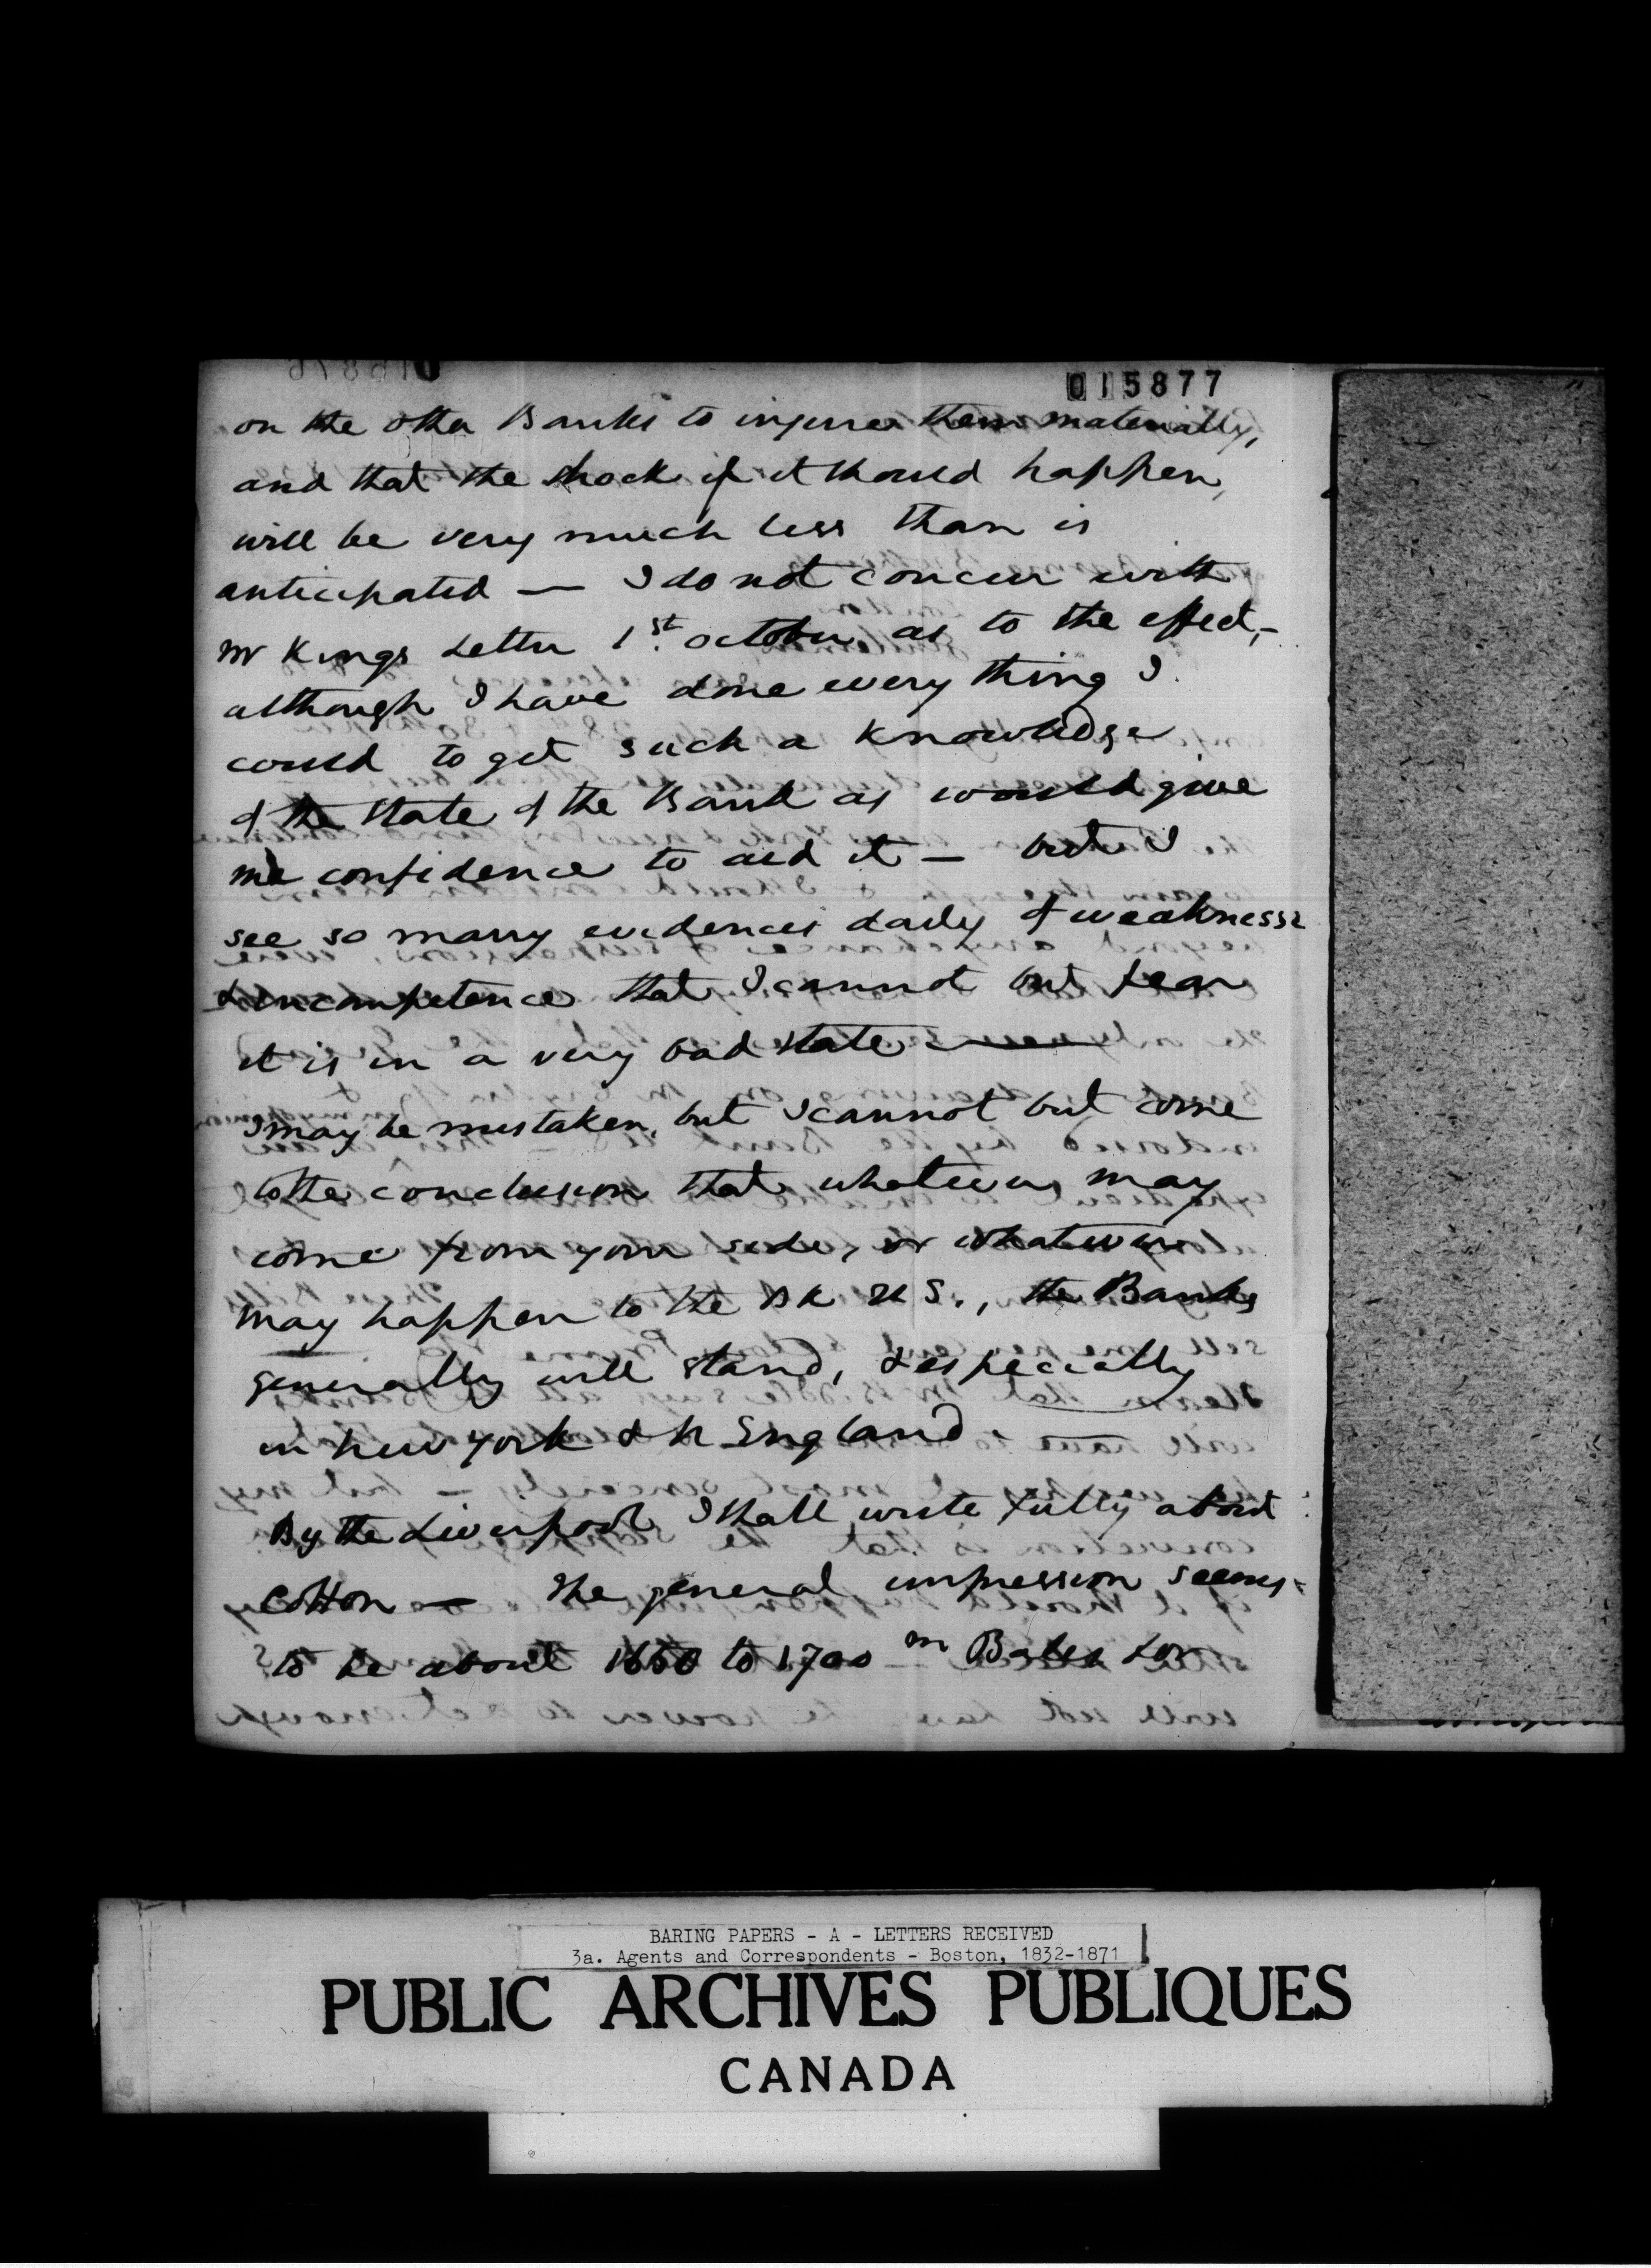 015877
on the other Banks to injure them materially,
and that the shock if it should happen,
will be very much less than is
anticipated — I do not concur with
Mr Kings Letter 1st. October as to the effect, –
although I have done every thing I
could to get such a knowledge
of the state of the Bank as would give
me confidence to aid it — but I
see so many evidences daily of weakness
& incompetence that I cannot but fear
it is in a very bad state —
I may be mistaken, but I cannot but come
to the conclusion that whatever may
come from your side, or whatever
may happen to the Bk U S., the Banks
generally will stand, & especially
in New York & N England
By the Liverpool I shall write fully about
Cotton — the general impression seems
to be about 1650 to 1700 m Bales for
BARING PAPERS - A - LETTERS RECEIVED
3a. Agents and Correspondents - Boston, 1832-1871
PUBLIC ARCHIVES PUBLIQUES
CANADA